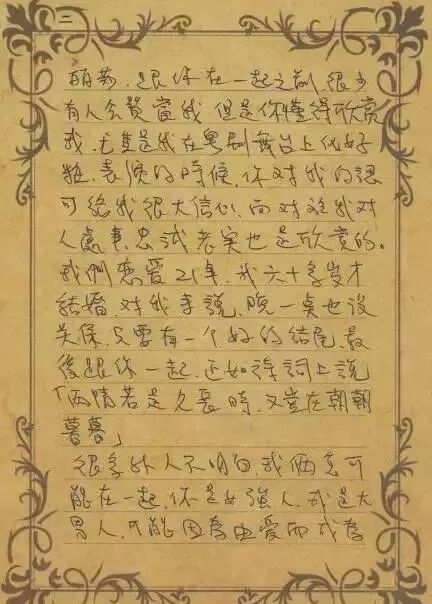 二
丽莎，跟你在一起之前，很少
有人会赞賞我，但是你懂得欣赏
我，尤其是我在粤剧舞台上做好
粧，表演的時候，你对我的認
可给我很大信心，而对於我对
人處事，忠诚老实也是欣赏的。
我們恋爱21年，我六十多岁才
结婚，对我来說，晚一点也没
关係，只要有一个好的结尾，最
後跟你一起，正如诗詞上說
「两情若是久長時，又豈在朝朝
暮暮」
很多外人不明白我俩怎可
能在一起，你是女强人，我是大
男人，只能因為由爱而成為